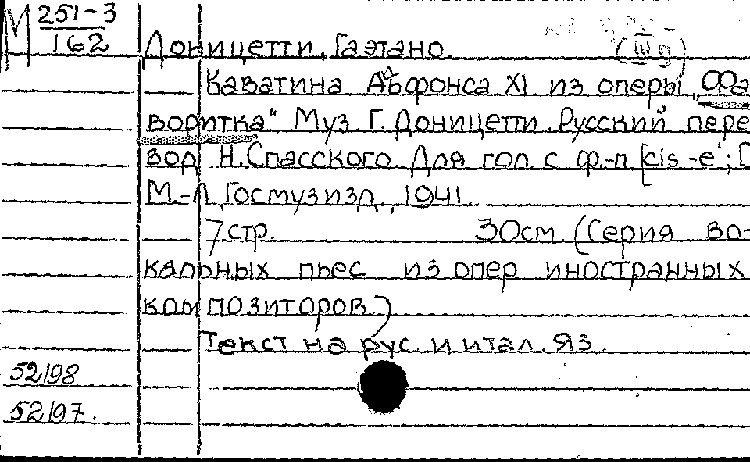 М 251-3
162
Доницетти, Гаэтано.
Каватина Альфонса XI из оперы „Фа
воритка" Муз Г. Доницетти. Русский пере
вод Н. Спасского. Для гол. с ф.-п. [cis-e';
М.-Л, Госмузизд., 1941.
7 стр. 30 см. (Серия во-
кальных пьес из опер иностранных
композиторов)
Текст на рус. и итал. яз.
52198
52197.